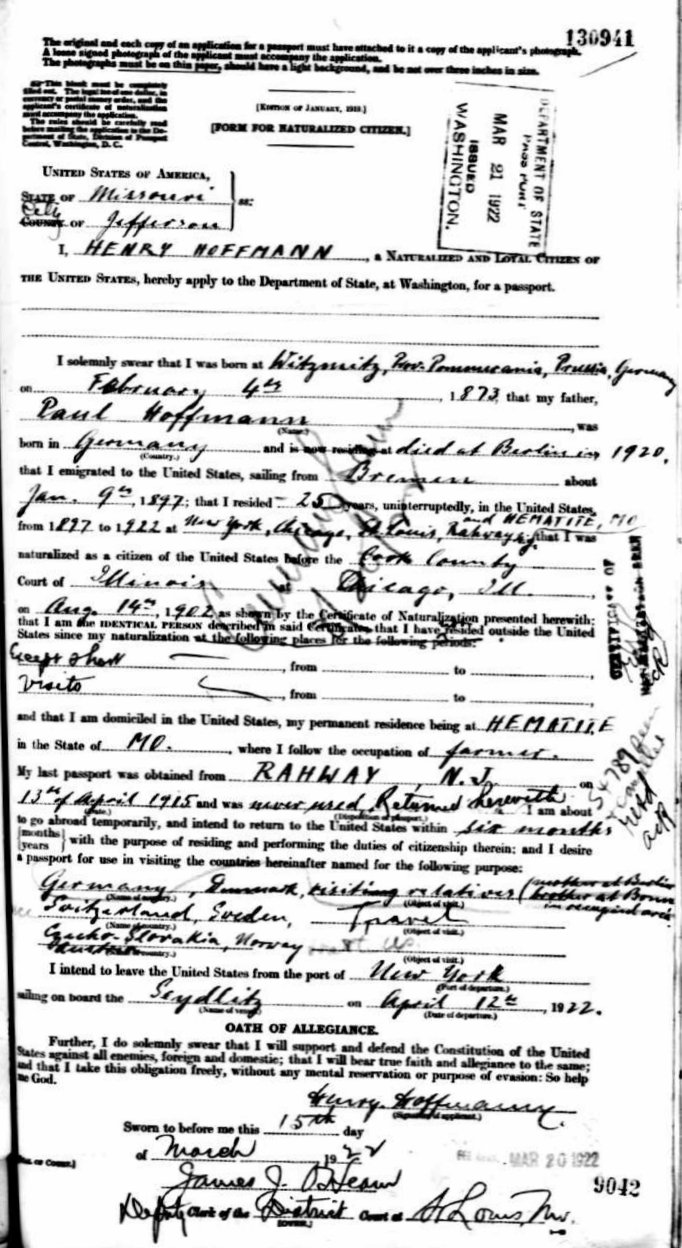 130941
The original and each copy of an application for a passport must have attached to it a copy of the applicant's photograph.
A loose signed photograph of the applicant must accompany the application.
The photographs must be on thin paper, should have a light background, and be not over three inches in size.
This blank must be completely
filled out. The legal fee of one dollar, in
currency or postal money order, and the
applicant's certificate of naturalization
must accompany the application.
The rules should be carefully read
before mailing the application to the De-
partment of State, Division of Passport
Control, Washington, D. C.
[EDITION OF JANUARY, 1919.]
[FORM FOR NATURALIZED CITIZEN.]
DEPARTMENT OF STATE
PASSPORT
MAR 21 1922
ISSUED
WASHINGTON.
UNITED STATES OF AMERICA,
STATE OF Missouri
ss:
City
COUNTY OF Jefferson
I, HENRY HOFFMANN, a NATURALIZED AND LOYAL CITIZEN OF
THE UNITED STATES, hereby apply to the Department of State, at Washington, for a passport.
I solemnly swear that I was born at Witzmitz, Prov. Pommerania, Prussia, Germany
on February 4th, 1873, that my father,
Paul Hoffmann, was
(Name.)
born in Germany and is now residing at died at Berlin in 1920,
(Country.)
that I emigrated to the United States, sailing from Bremen about
Jan. 9th, 1897; that I resided 25 years, uninterruptedly, in the United States,
from 1897 to 1922 at New York, Chicago, St. Louis, Rahway N.J. and HEMATITE, MO that I was
naturalized as a citizen of the United States before the Cook County
Court of Illinois at Chicago, Ill.,
on Aug. 14th, 1902 as shown by the Certificate of Naturalization presented herewith;
that I am the IDENTICAL PERSON described in said Certificate, that I have resided outside the United
States since my naturalization at the following places for the following periods:
Except short, from to ,
visits, from to ,
and that I am domiciled in the United States, my permanent residence being at HEMATITE
in the State of MO., where I follow the occupation of farmer.
My last passport was obtained from RAHWAY, N.J. on
13th of April 1915 and was never used Returned herewith. I am about
(Date.) (Disposition of passport.)
to go abroad temporarily, and intend to return to the United States within six months
[months
years] with the purpose of residing and performing the duties of citizenship therein; and I desire
a passport for use in visiting the countries hereinafter named for the following purpose:
Germany, Denmark, visiting relatives (mother at Berlin
(Name of country.) (Object of visit.)
brother at Bonn
in occupied area
Switzerland, Sweden, Travel
(Name of country.) (Object of visit.)
Czecho-Slovakia, Norway
(Name of country.) (Object of visit.)
I intend to leave the United States from the port of New York
(Port of departure.)
sailing on board the Seydlitz on April 12th, 1922.
(Name of vessel.) (Date of departure.)
OATH OF ALLEGIANCE.
Further, I do solemnly swear that I will support and defend the Constitution of the United
States against all enemies, foreign and domestic; that I will bear true faith and allegiance to the same;
and that I take this obligation freely, without any mental reservation or purpose of evasion: So help
me God.
Henry Hoffmann.
(Signature of applicant.)
Sworn to before me this 15th day
of March 1922
MAR 20 1922
[SEAL OF COURT.]
James J. O'Hearn
9042
Deputy Clerk of the District Court at St Louis, Mo.